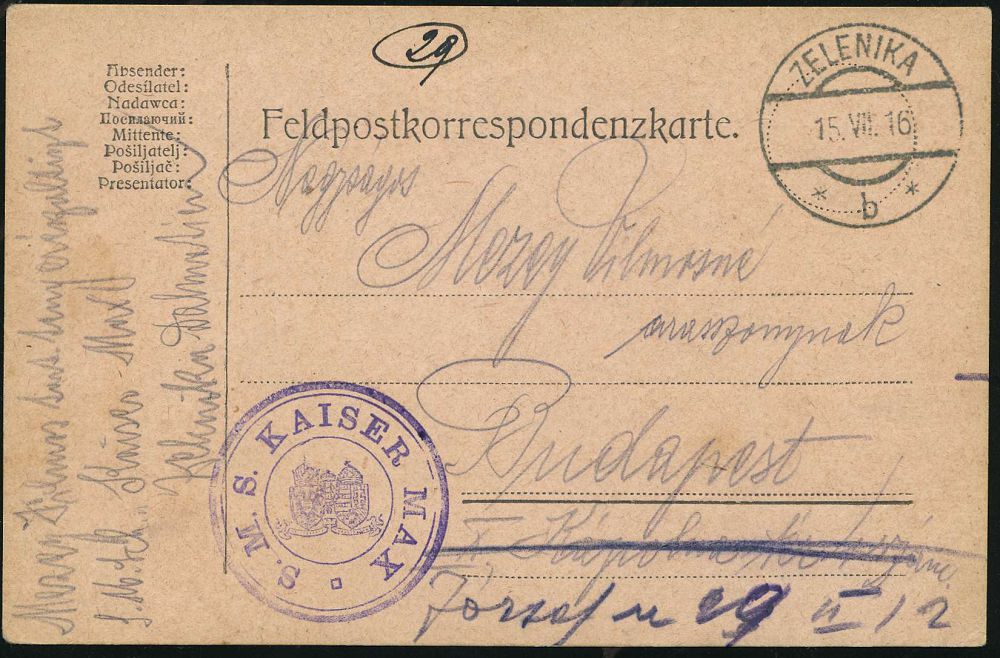 29
ZELENIKA
15. VII. 16
* b *
Absender:
Odesílatel:
Nadawca:
Посилаючий:
Mittente:
Pošiljatelj:
Pošiljač:
Presentator:
Feldpostkorrespondenzkarte.
Nagyságos
Mezey Vilmosné
úrasszonynak
Budapest
József u 29 II 12
S. M. S. KAISER MAX
Mezey Vilmos
Kaiser Max
Zelenika Dalmatien